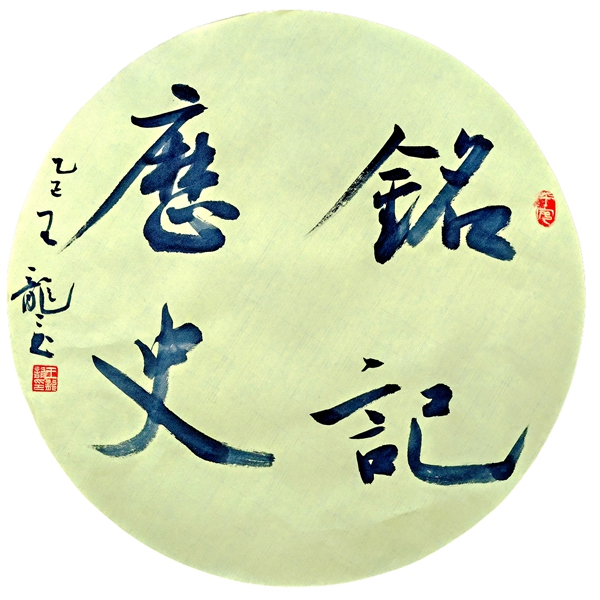 銘記
歷史
乙巳王龍